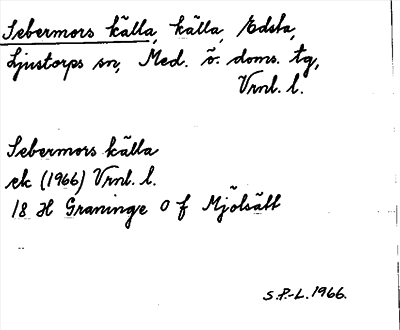 Sebermors källa, källa, Edsta,
Ljustorps sn, Med. ö. doms. tg,
Vrnl. l.
Sebermors källa
ek (1966) Vrnl. l.
18 H Graninge O f Mjölsätt
S.P.-L. 1966.